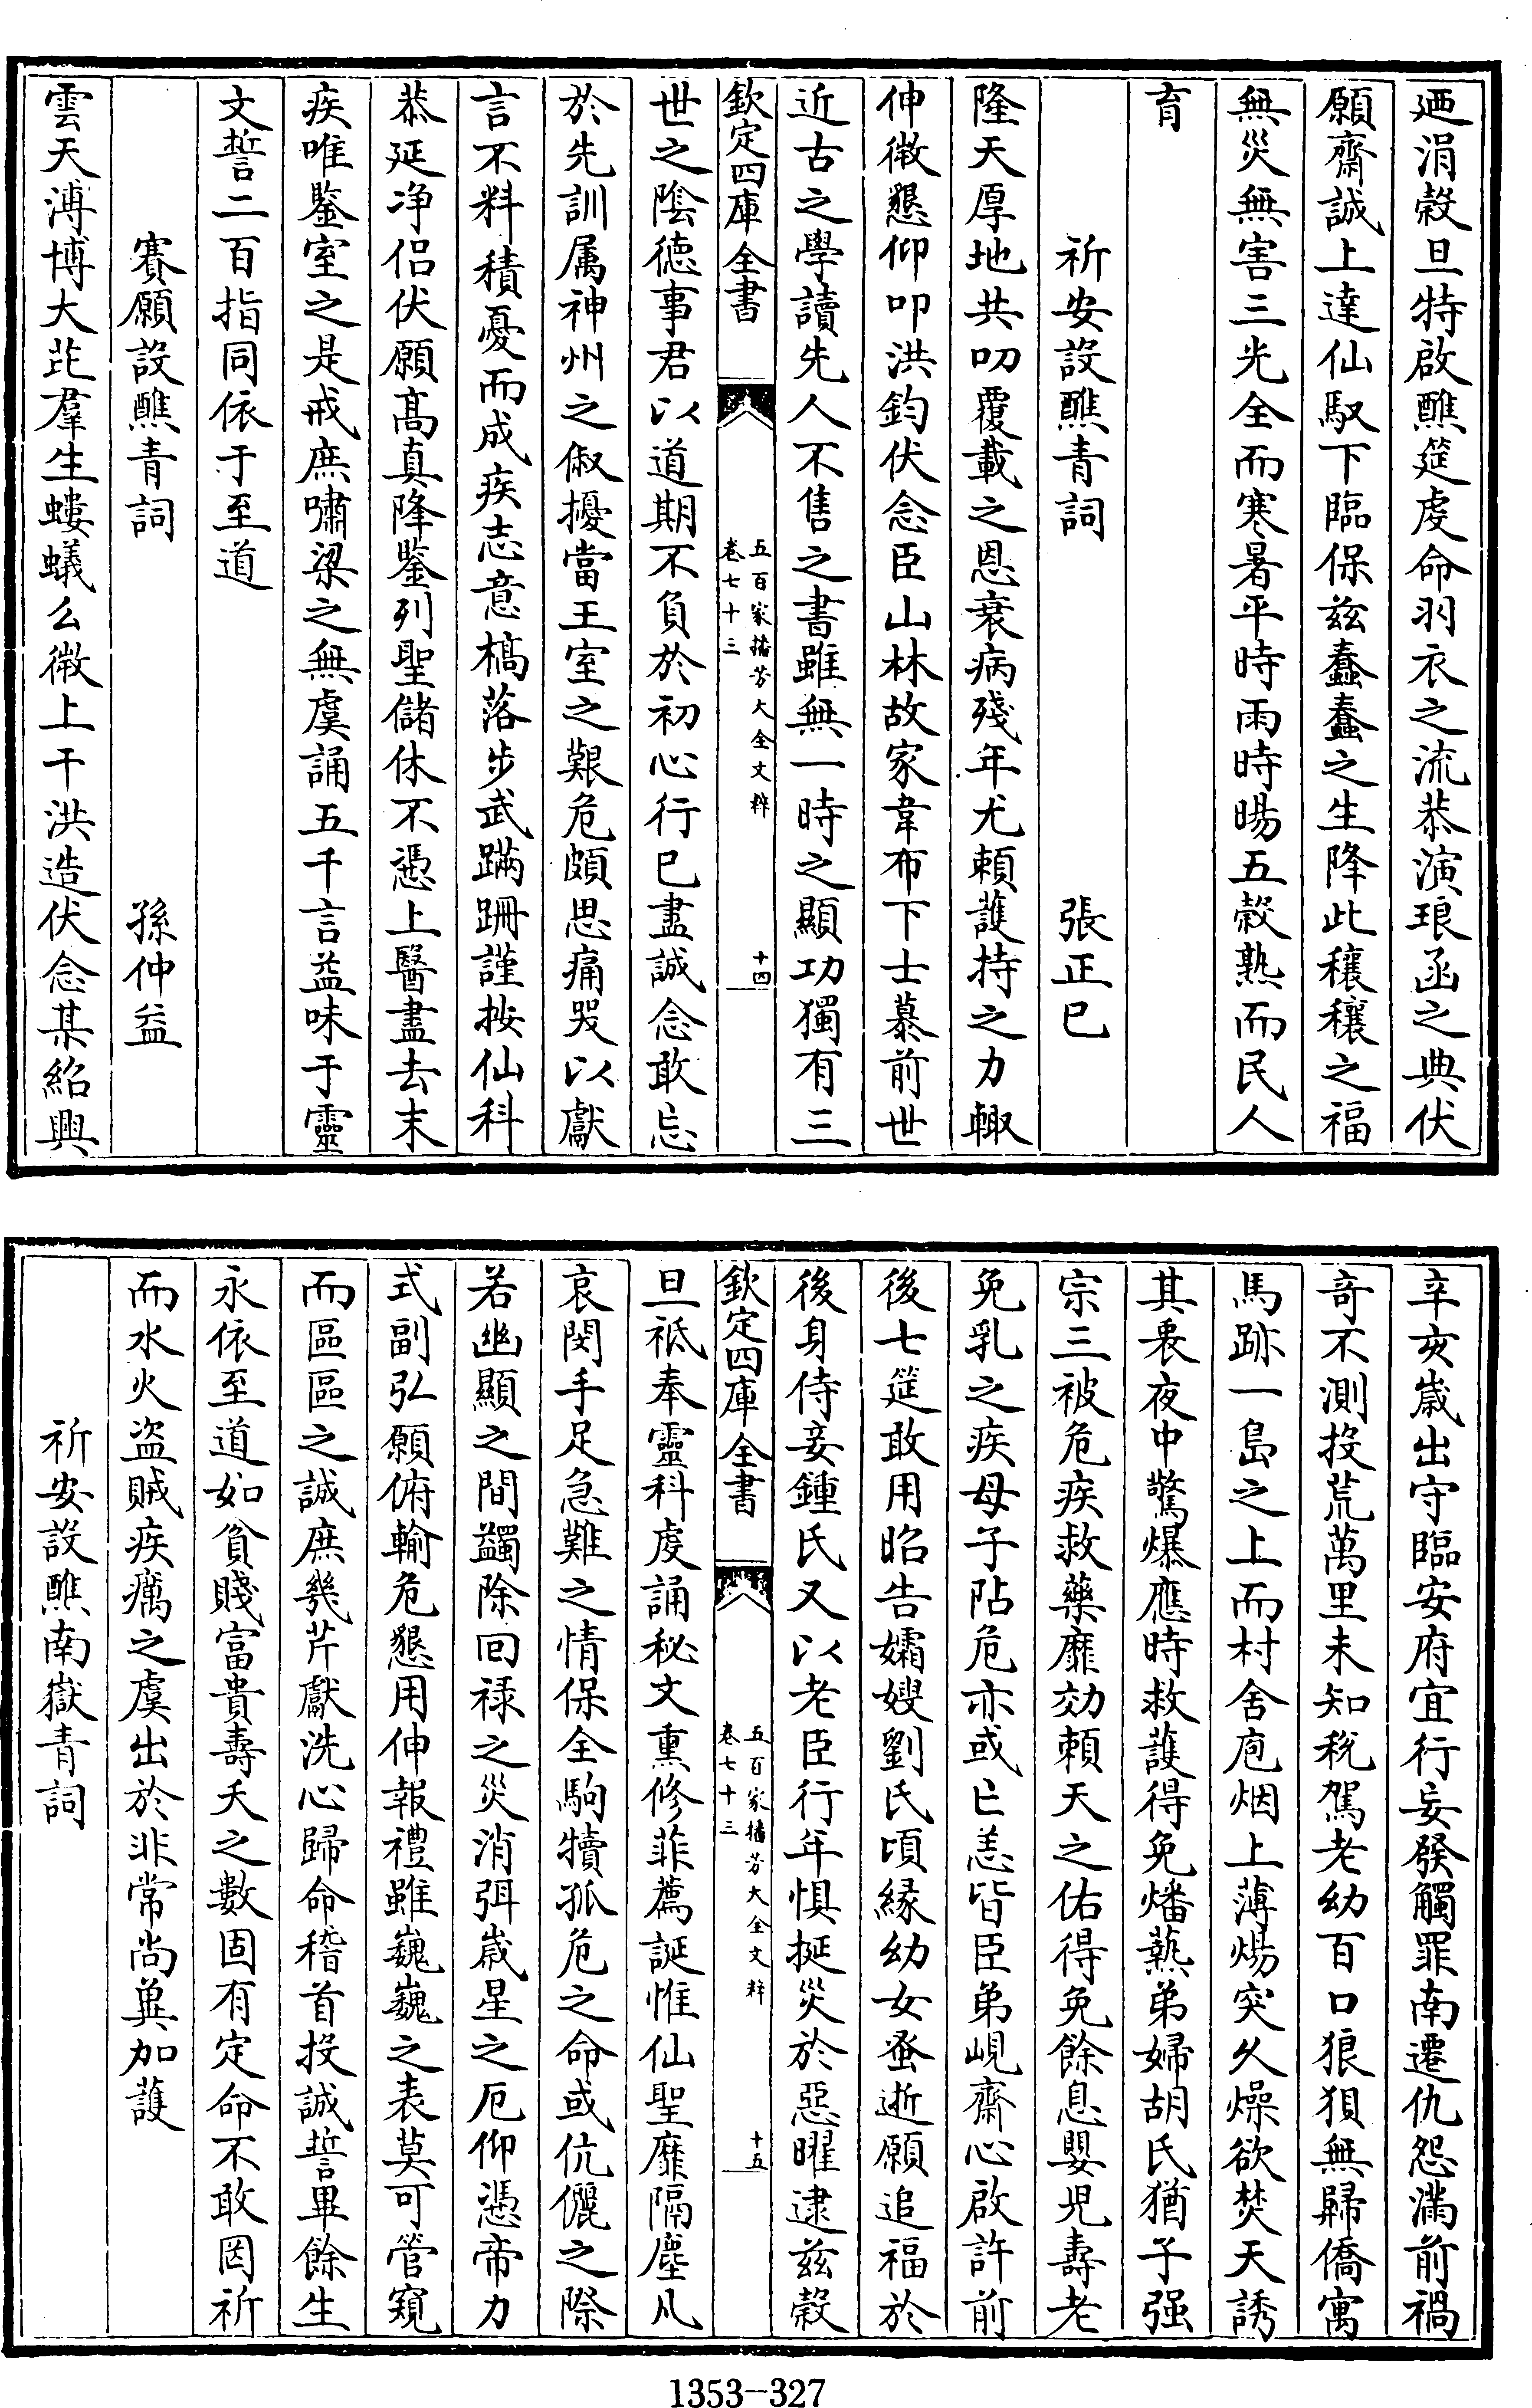 廼涓榖旦特啟醮筵虔命羽衣之流恭演琅函之典伏
願齋誠上達仙馭下臨保兹蠢蠢之生降此穰穰之福
無災無害三光全而寒暑平時雨時暘五穀熟而民人
育
祈安設醮青詞 張正已
隆天厚地共叨覆載之恩衰病殘年尤賴護持之力輙
伸微懇仰叩洪鈞伏念臣山林故家韋布下士慕前世
近古之學讀先人不售之書雖無一時之顯功獨有三
欽定四庫全書 五百家播芳大全文粹 卷七十三 十四
世之陰德事君以道期不負於初心行已盡誠念敢忘
於先訓属神州之俶擾當王室之艱危頗思痛哭以獻
言不料積憂而成疾志意槁落步武蹣跚謹按仙科
恭延净侣伏願髙真降鑒列聖儲休不憑上醫盡去末
疾唯鑒室之是戒庶嘯梁之無虞誦五千言益味于靈
文誓二百指同依于至道
賽願設醮青詞 孫仲益
雲天溥博大芘羣生螻蟻么微上干洪造伏念某紹興
辛亥嵗出守臨安府宜行妄發觸罪南遷仇怨滿前禍
奇不測投荒萬里未知稅駕老幼百口狼狽無歸僑寓
馬跡一島之上而村舍庖烟上薄煬突久燥欲焚天誘
其衷夜中驚爆應時救護得免燔爇弟婦胡氏猶子强
宗三被危疾救藥靡効頼天之佑得免餘息嬰兒壽老
免乳之疾母子阽危亦或亡恙皆臣弟峴齋心啟許前
後七筵敢用昭告孀嫂劉氏頃縁幼女蚤逝願追福於
後身侍妾鍾氏又以老臣行年惧挻災於惡曜逮兹榖
欽定四庫全書 五百家播芳大全文粹 卷七十三 十五
旦祗奉靈科虔誦秘文熏修菲薦誕惟仙聖靡隔塵凡
哀閔手足急難之情保全駒犢孤危之命或伉儷之際
若幽顯之間蠲除回禄之災消弭嵗星之厄仰憑帝力
式副弘願俯輸危懇用伸報禮雖巍巍之表莫可管窺
而區區之誠庶幾芹獻洗心歸命稽首投誠誓畢餘生
永依至道如貧賤富貴壽夭之數固有定命不敢罔祈
而水火盜賊疾癘之虞出於非常尚冀加護
祈安設醮南嶽青詞
1353-327